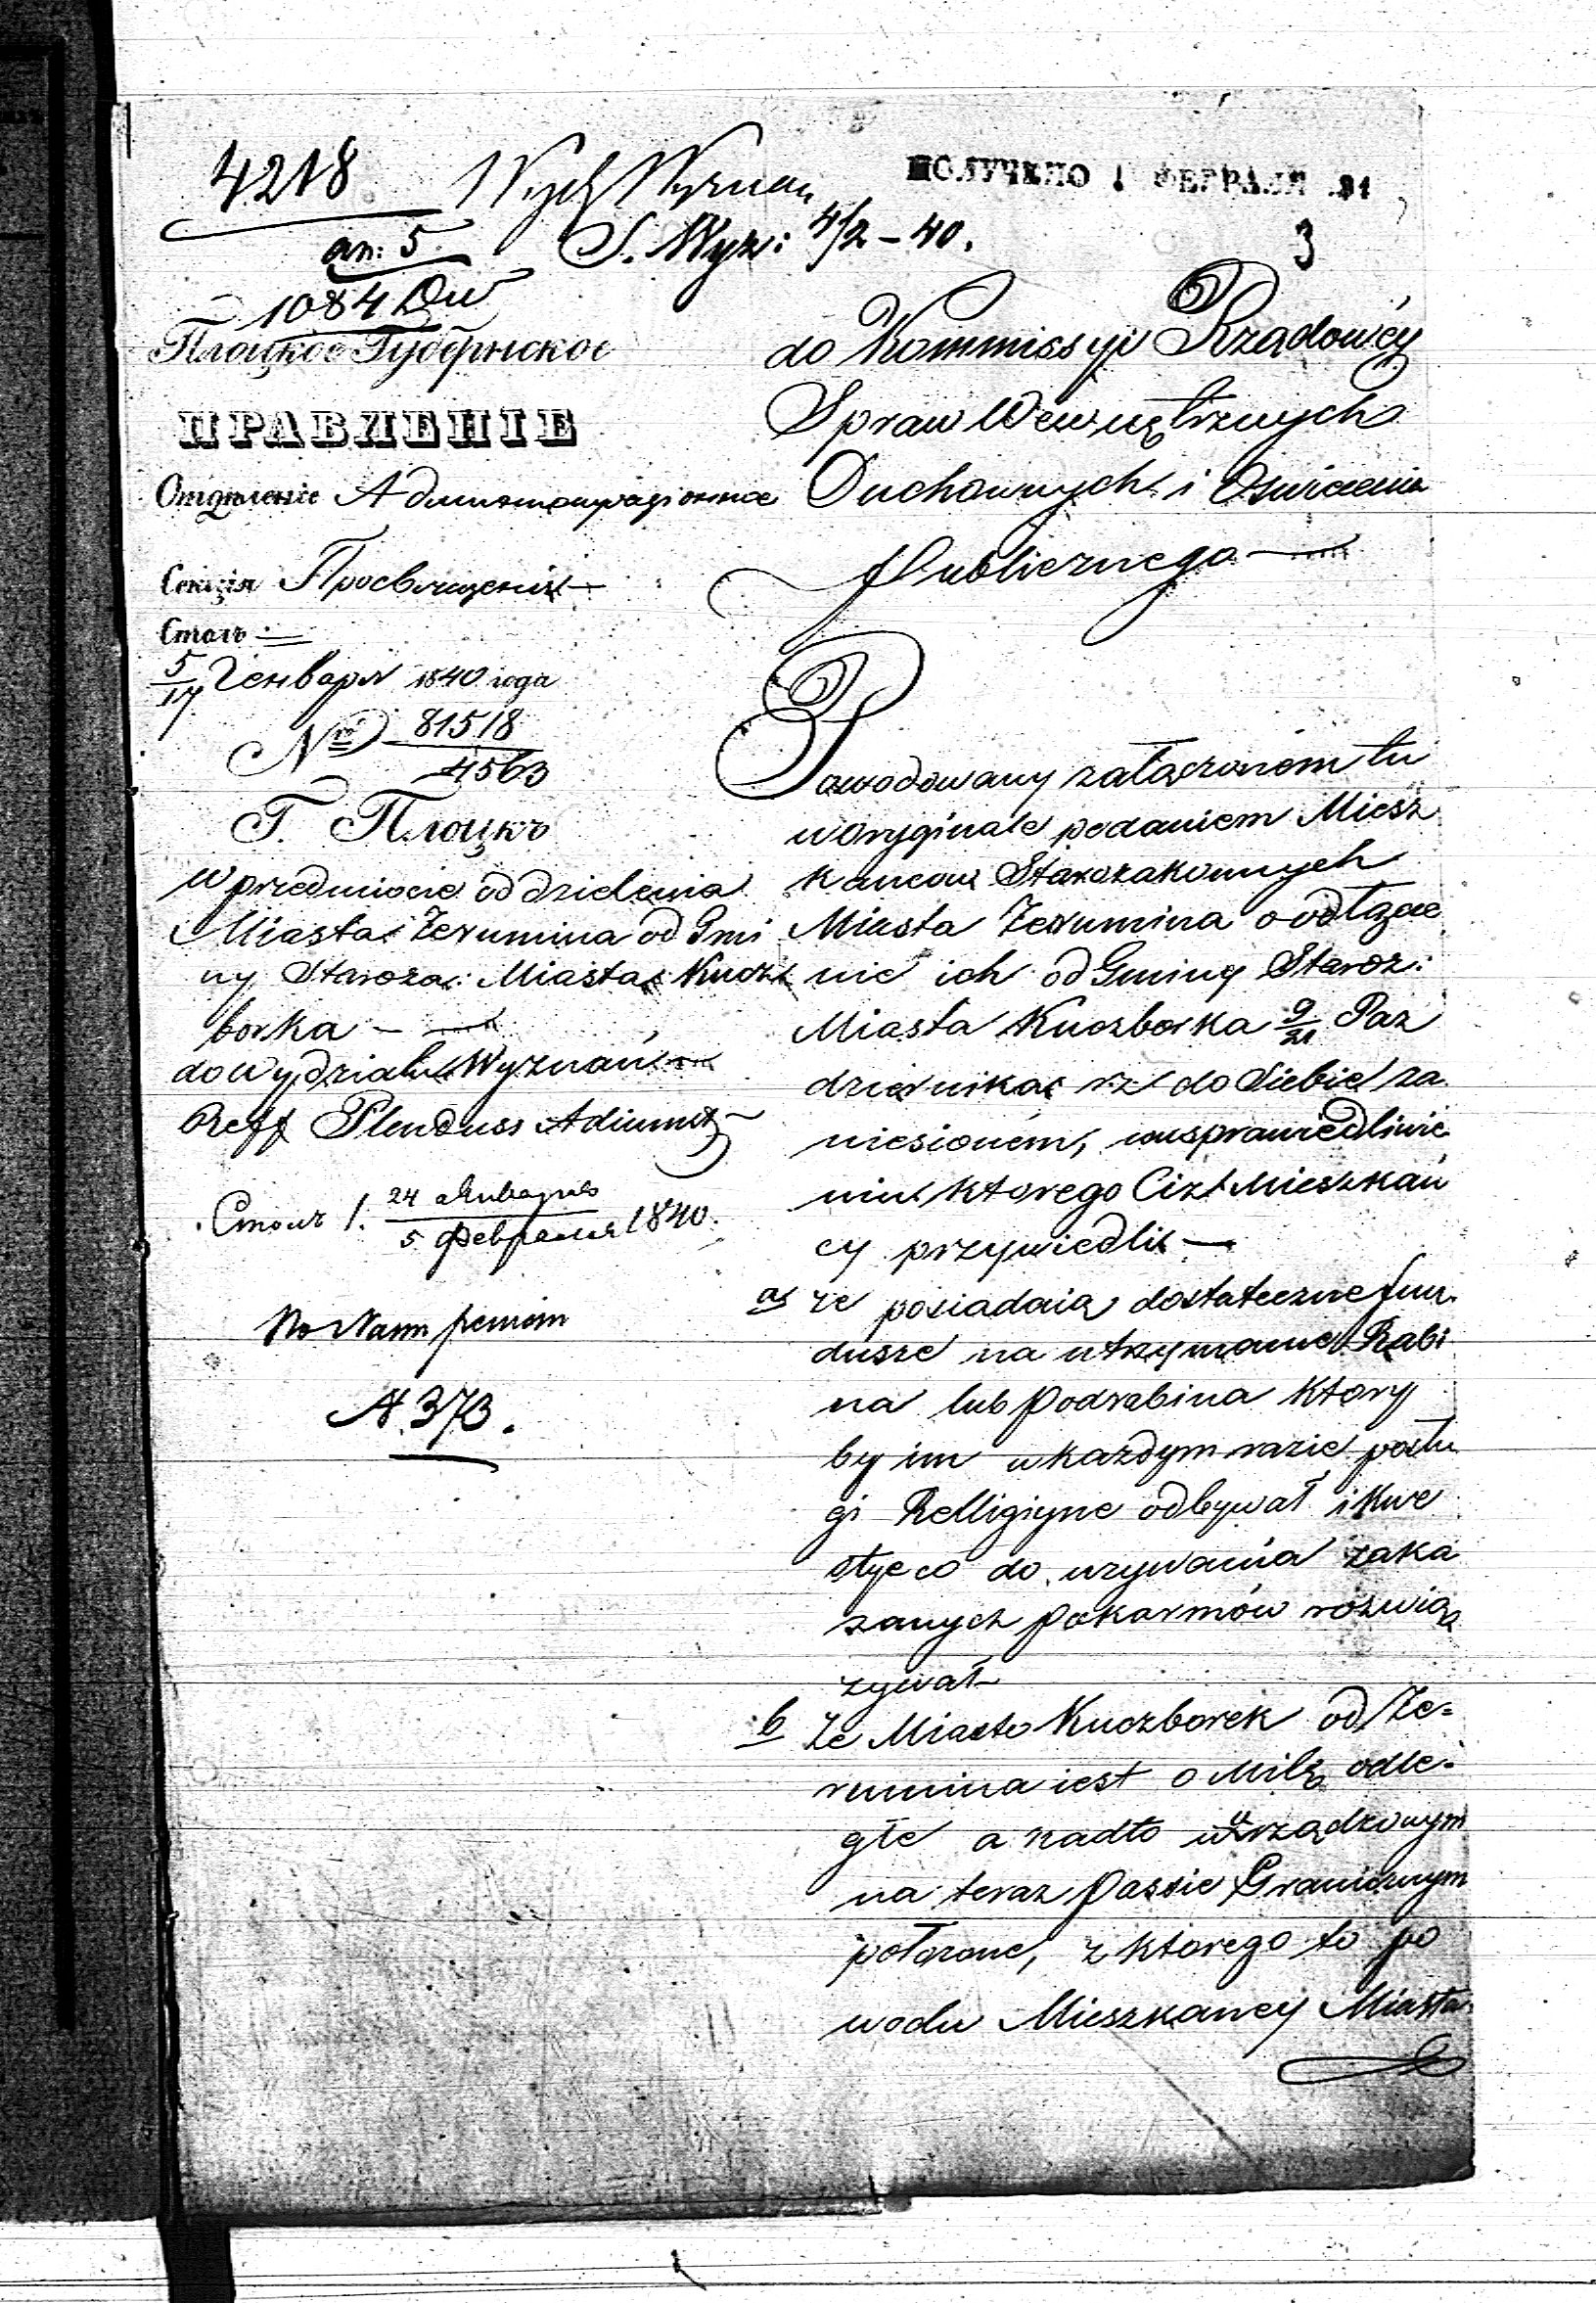 4218
Wydz Wyznań
ПОЛУЧЕНО 1 ФЕВРАЛЯ
an: 5.
S. Wyz: 4/2 - 40.
3
1084 Dw
Плоцкое Губернское
ПРАВЛЕНІЕ
Отдѣленіе Администраціонное
Секція Просвѣщенія
Столъ
5/17 Генваря 1840 года
Nro 81518
4563
Г. Плоцкъ
w przedmiocie oddzielenia
Miasta Żerumina od Gmi
ny Staroza: Miasta Kucz
borka
do Wydziału Wyznań
Reff Plenduss Adiunkt
Столъ 1. 24 Января
5 Февраля 1840.
N. 373.
do Kommissyi Rządowéy
Spraw Wewnętrznych
Duchownych i Oświecenia
Publicznego
Powodowany załączonem tu
w oryginale podaniem Miesz
kancow Starozakonnych
Miasta Żerumina o odłącze
nie ich od Gminy Staroz:
Miasta Kuczborka 9/21 Paz
dziernika rz do Siebie za
niesioném, w usprawiedliwie
niu ktorego Ciż Mieszkań
cy przywiedli
a, że posiadaią dostateczne fun
dusze na utrzymanie Rabi
na lub Podrabina ktory
by im w każdym razie posłu
gi Relligiyne odbywał i kwe
stye co do używania zaka
zanych pokarmów rozwią
zywał
b że Miasto Kuczborek od Że=
rumina iest o Milę odle=
głe a nadto w urządzonym
na teraz Passie Granicznym
położone, z ktorego to po
wodu Mieszkancy Miasta